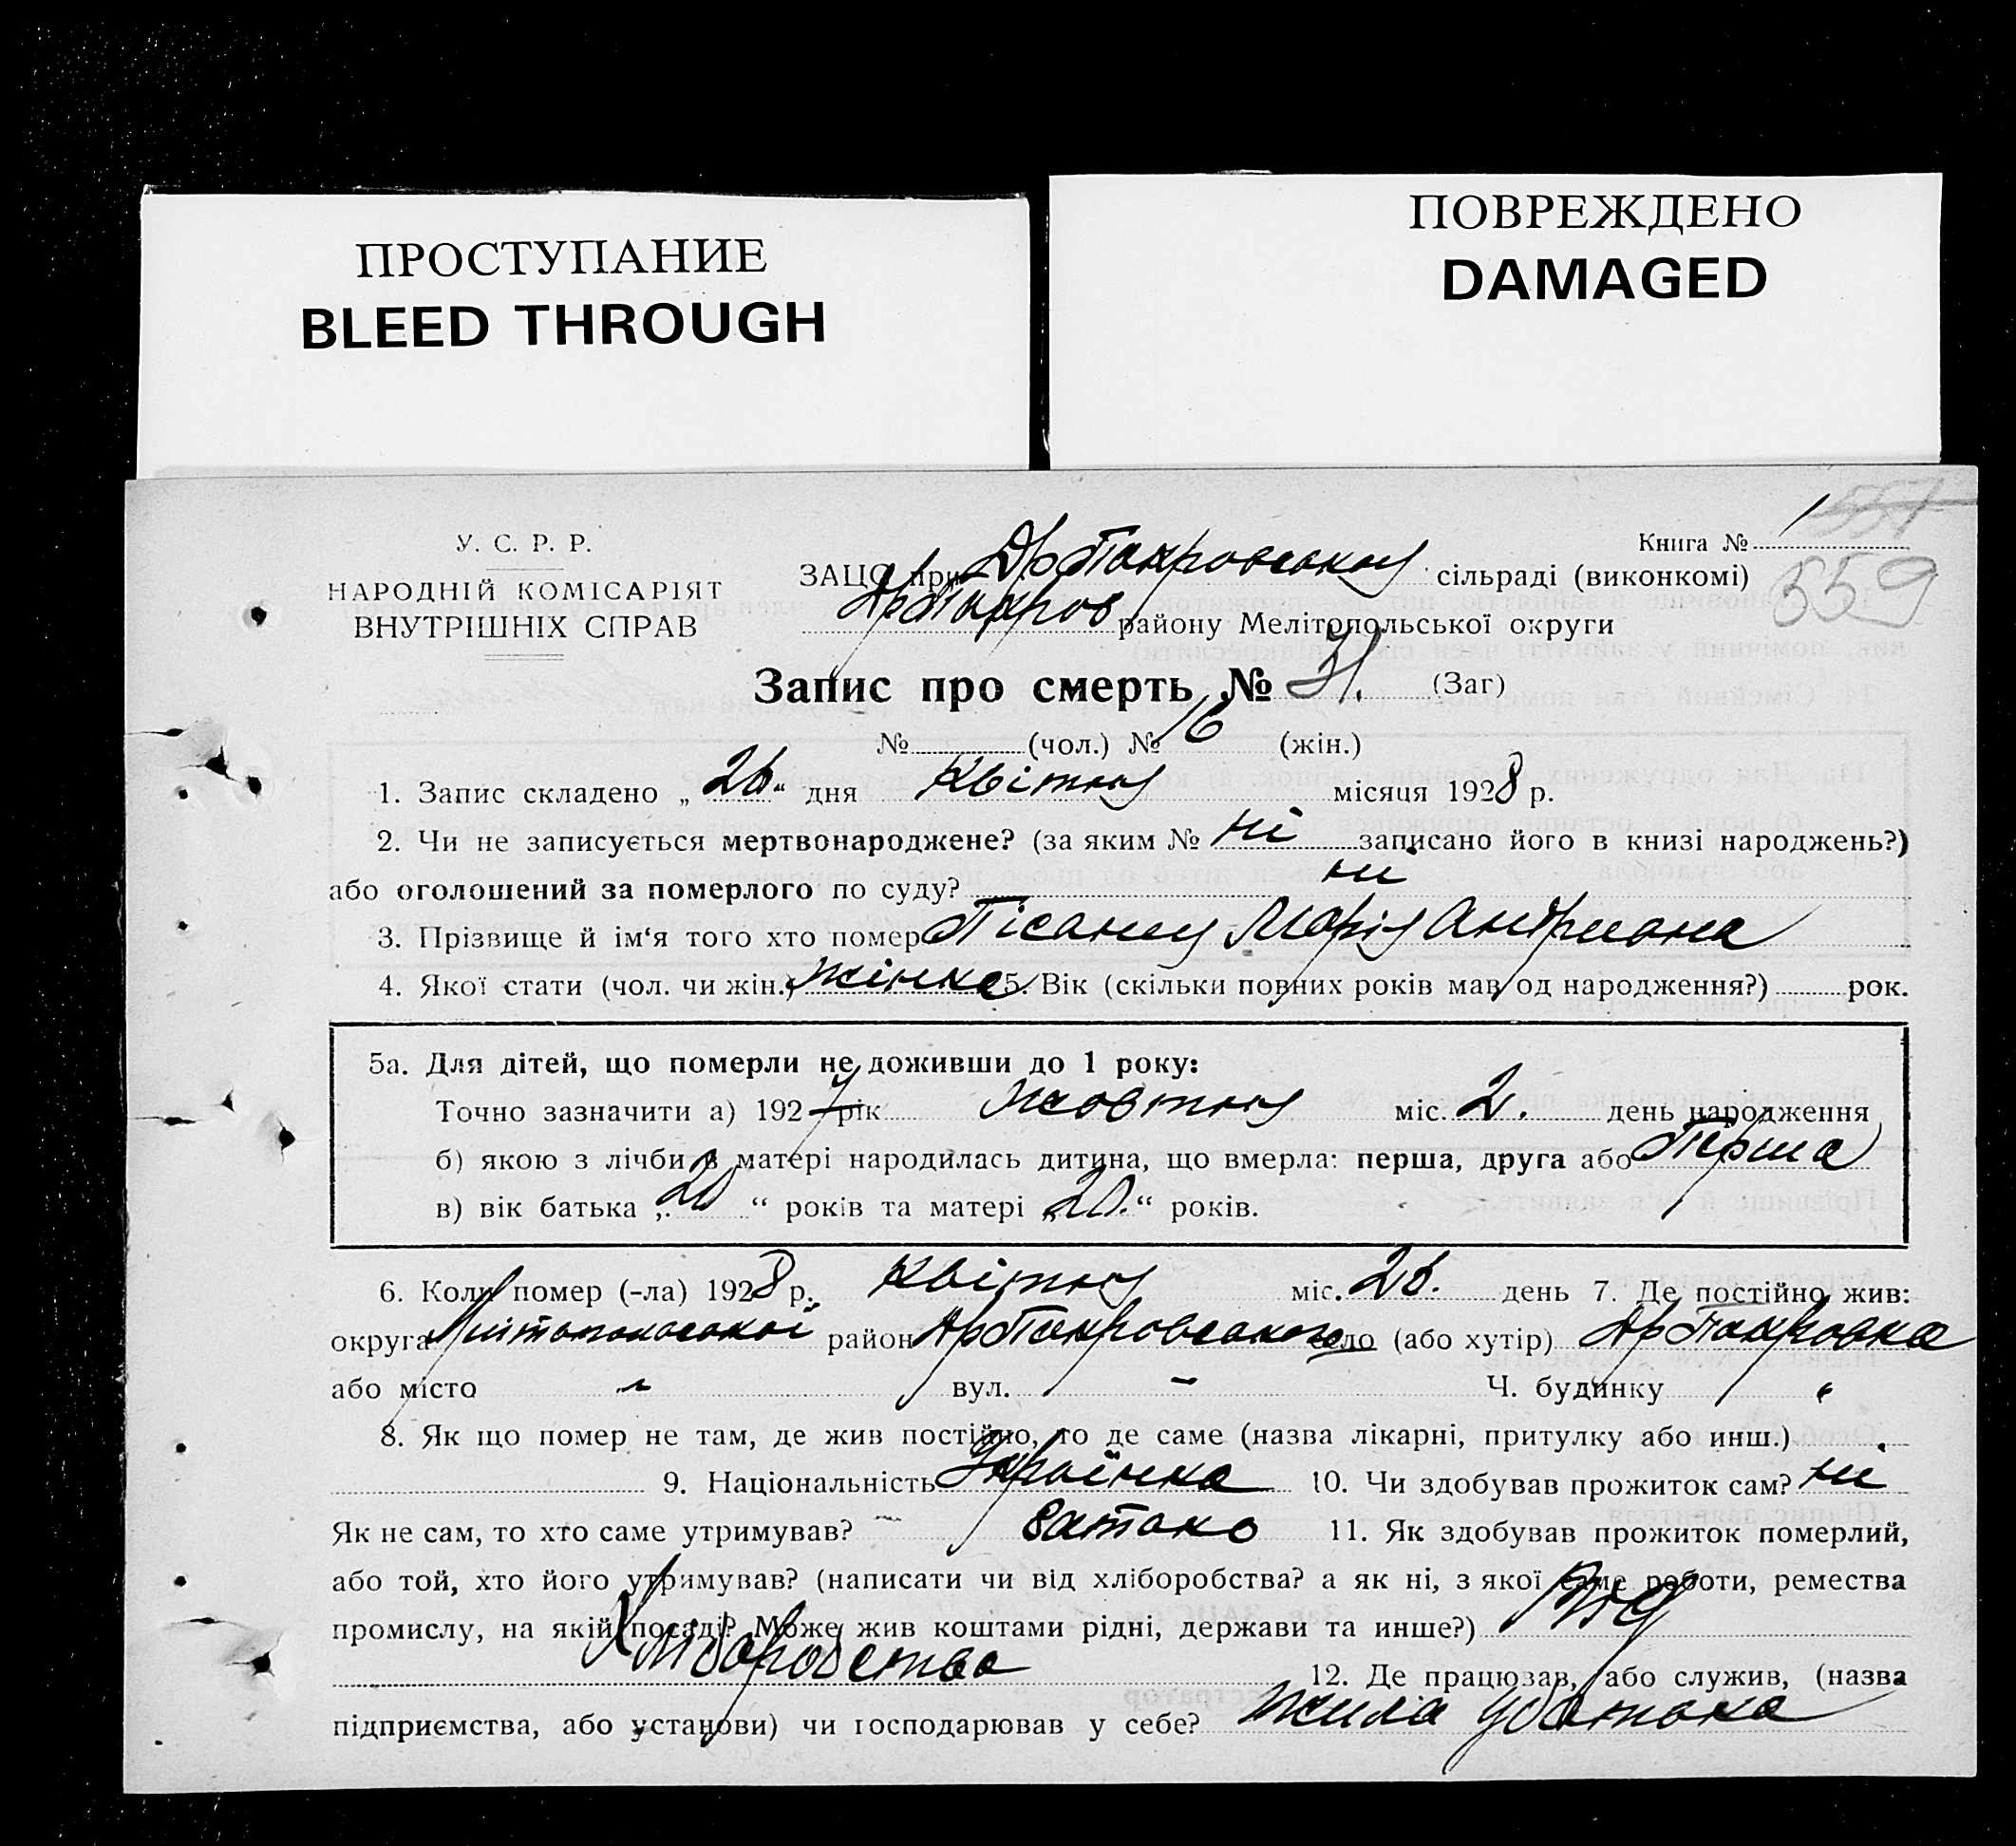 ПРОСТУПАНИЕ
BLEED THROUGH
ПОВРЕЖДЕНО
DAMAGED
У. С. Р. Р.
НАРОДНІЙ КОМІСАРІЯТ
ВНУТРІШНІХ СПРАВ
Книга № 1
557
559
ЗАЦС при сільраді (виконкомі)
району Мелітопольської округи
Запис про смерть № 31. (Заг)
№ (чол.) № 16 (жін.)
1. Запис складено „ 26 “ дня Квітня місяця 1928 р.
2. Чи не записується мертвонароджене? (за яким № ні записано його в книзі народжень?)
або оголошений за померлого по суду? ні
3. Прізвище й ім‘я того хто помер Марія
4. Якої стати (чол. чи жін.) жінка 5. Вік (скільки повних років мав од народження?) рок.
5а. Для дітей, що померли не доживши до 1 року:
Точно зазначити а) 1927 рік жовтня міс. 2. день народження
б) якою з лічби в матері народилась дитина, що вмерла: перша, друга або Перша
в) вік батька „ 20 “ років та матері „ 20. “ років.
6. Коли помер (-ла) 1928 р. Квітня міс. 26. день 7. Де постійно жив:
округа район село (або хутір)
або місто - вул. - Ч. будинку
8. Як що помер не там, де жив постійно, то де саме (назва лікарні, притулку або инш.)
9. Національність Українка 10. Чи здобував прожиток сам? ні
Як не сам, то хто саме утримував? батько 11. Як здобував прожиток померлий,
або той, хто його утримував? (написати чи від хліборобства? а як ні, з якої саме роботи, ремества
промислу, на якій посаді? Може жив коштами рідні, держави та инше?) Від
Хліборобства 12. Де працював, або служив, (назва
підприємства, або установи) чи господарював у себе? жила у батька